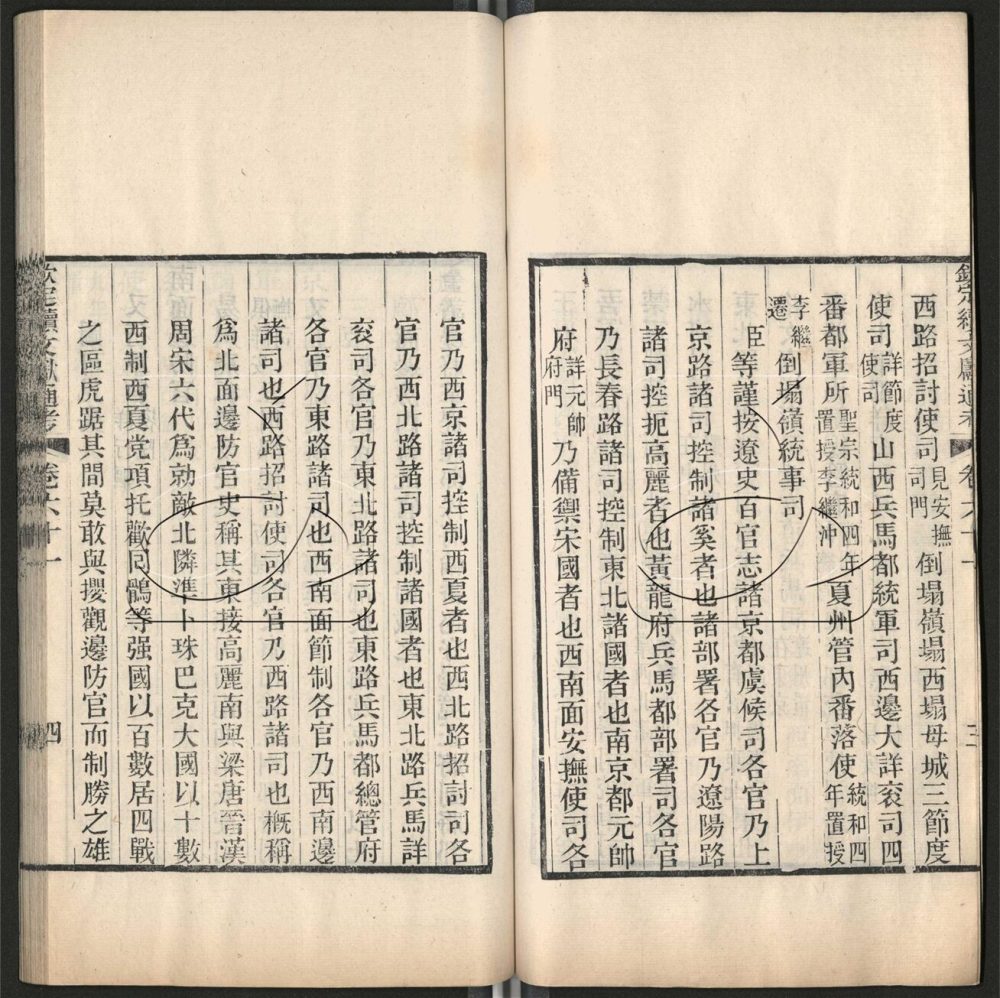 欽定續文獻通考 卷六十一 三
西路招討使司見安撫司門倒塌嶺塌西塌母城三節度
使司詳節度使司山西兵馬都統軍司西邊大詳衮司四
番都軍所聖宗統和四年置授李繼沖夏州管內番落使統和四年置授
李繼遷倒塌嶺統事司
臣等謹按遼史百官志諸京都虞候司各官乃上
京路諸司控制諸奚者也諸部署各官乃遼陽路
諸司控扼高麗者也黃龍府兵馬都部署司各官
乃長春路諸司控制東北諸國者也南京都元帥
府詳元帥府門乃備禦宋國者也西南面安撫使司各
官乃西京諸司控制西夏者也西北路招討司各
官乃西北路諸司控制諸國者也東北路兵馬詳
衮司各官乃東北路諸司也東路兵馬都總管府
各官乃東路諸司也西南面節制各官乃西南邊
諸司也西路招討使司各官乃西路諸司也概稱
爲北面邊防官史稱其東接高麗南與梁唐晉漢
周宋六代爲勍敵北隣準卜珠巴克大國以十數
西制西夏党項托歡回鶻等强國以百數居四戰
之區虎踞其間莫敢與攖觀邊防官而制勝之雄
欽定續文獻通考 卷六十一 四